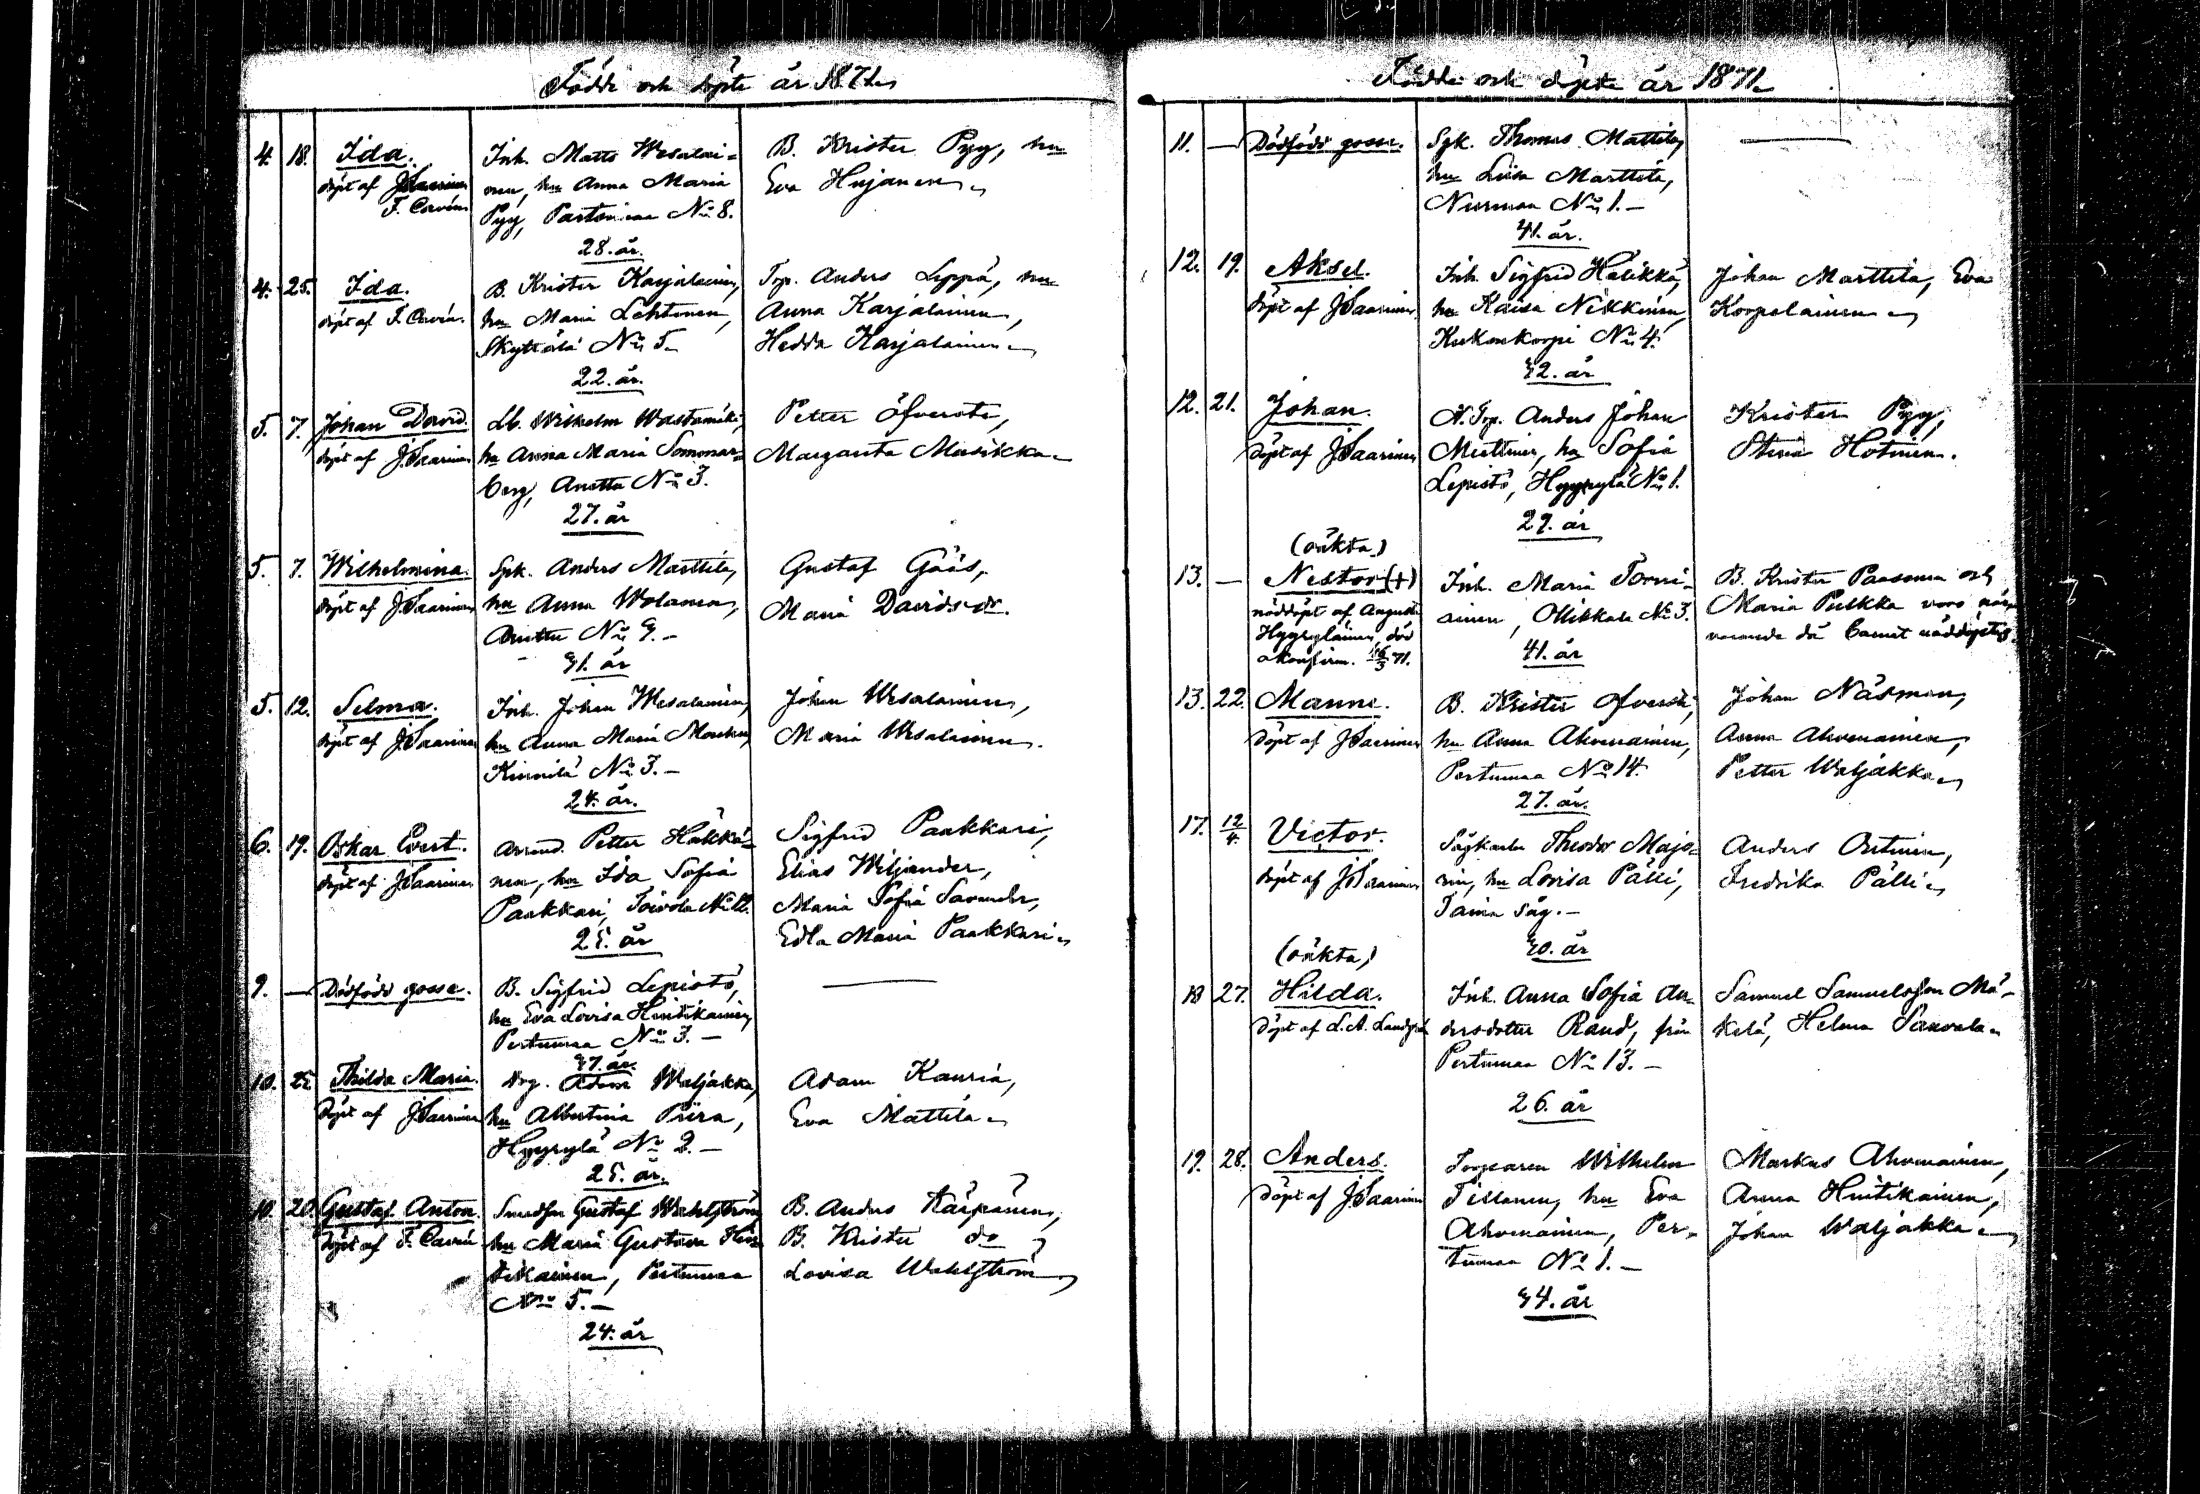 Födde och döpte år 1871.
4. 18. Ida.
döpt af J. Saarinen
F. Cavén
Inh. Matts Wesalai-
nen, hu Anna Maria
Pyy, Partsimaa No 8.
28. år.
B. Krister Pyy, hu
Eva Hujanen.
4. 25. Ida.
döpt af F. Cavén.
B. Krister Karjalainen,
hu Maria Lehtonen,
Skyttälä No 5.
22. år.
Top. Anders Leppä, hu
Anna Karjalainen,
Hedda Karjalainen.
5. 7. Johan David.
döpt af J. Saarinen
Lb. Wilhelm Wastamäki,
hu Anna Maria Sommar-
berg, Anetta No 3.
27. år
Petter Öfversti,
Margareta Musikka.
5. 7. Wilhelmina.
döpt af J. Saarinen
Spk. Anders Marttila,
hu Anna Wolanen,
Anettu No 9.-
41. år
Gustaf Gäås,
Maria Davidsdr.
5. 12. Selma.
döpt af J. Saarinen
Inh. Johan Wesalainen,
hu Anna Maria
Kinnilä No 3.-
24. år.
Johan Wesalainen,
Maria Wesalainen.
6. 19. Oskar Evert.
döpt af J. Saarinen
Arrend. Petter Häkkä-
nen, hu Ida Sofia
Paakkari, Toivola No
25. år
Sigfrid Paakkari,
Elias Wiljander,
Maria Sofia Savander,
Edla Maria Paakkari.
9. — Dödfödd gosse.
B. Sigfrid Lepistö,
hu Eva Lovisa Hintikainen,
Pertumaa No 3.-
47. år.
10. 25. Thilda Maria.
döpt af J. Saarinen
Drg. Adam Waljakka,
hu Albertina Piira,
Hyyrylä No 2.-
25. år.
Adam Kauria,
Eva Mattila.
10. 20. Gustaf Anton.
döpt af F. Cavén
Smedsn Gustaf Wahlström
hu Maria Gustava Hin-
tikainen, Pertumaa
No 5.-
24. år
B. Anders Käspänen,
B. Krister do
Lovisa Wahlström
Födde och döpte år 1871.
11. — Dödfödd gosse.
Spk. Thomas Mattila,
hu Lisa Marttila,
Nurmaa No 1.-
41. år.
12. 19. Aksel.
döpt af J. Saarinen
Inh. Sigfrid Halikka,
hu Kaisa Nikkinen,
Kuhankorpi No 4.
42. år
Johan Marttila, Eva
Korpelainen.
12. 21. Johan.
döpt af J. Saarinen
A. Top. Anders Johan
Miettinen, hu Sofia
Lepistö, Hyyrylä No 1.
29. år
Krister Pyy,
Stina Hotinen.
(oäkta)
13. — Nestor (+)
nöddöpt af August
Hyyryläinen, död
okonfirm. 16/3 71.
Inh. Maria Torni-
ainen, Ollikkala No 3.
41. år
B. Krister Paasonen och
Maria Pulkka voro när-
varande då barnet nöddöptes.
13. 22. Manne.
döpt af J. Saarinen
B. Krister Öfversti,
hu Anna Ahvenainen,
Pertumaa No 14.
27. år.
Johan Näsman,
Anna Ahvenainen,
Petter Waljakka.
17. 12/4. Victor.
döpt af J. Saarinen
Sågkarlen Theodor Majo-
rin, hu Lovisa Pälli,
Taina såg.-
40. år
Anders Outinen,
Fredrika Pälli.
(oäkta)
18 27. Hilda.
döpt af L. A. Landgren
Inh. Anna Sofia An-
dersdotter Rand, från
Pertumaa No 13.-
26. år
Samuel Samuelsson Mä-
kelä, Helena Sauvala.
19. 28. Anders.
döpt af J. Saarinen
Torparen Wilhelm
Tillanen, hu Eva
Ahvenainen, Per-
tumaa No 1.-
44. år
Markus Ahvenainen,
Anna Hintikainen,
Johan Waljakka.